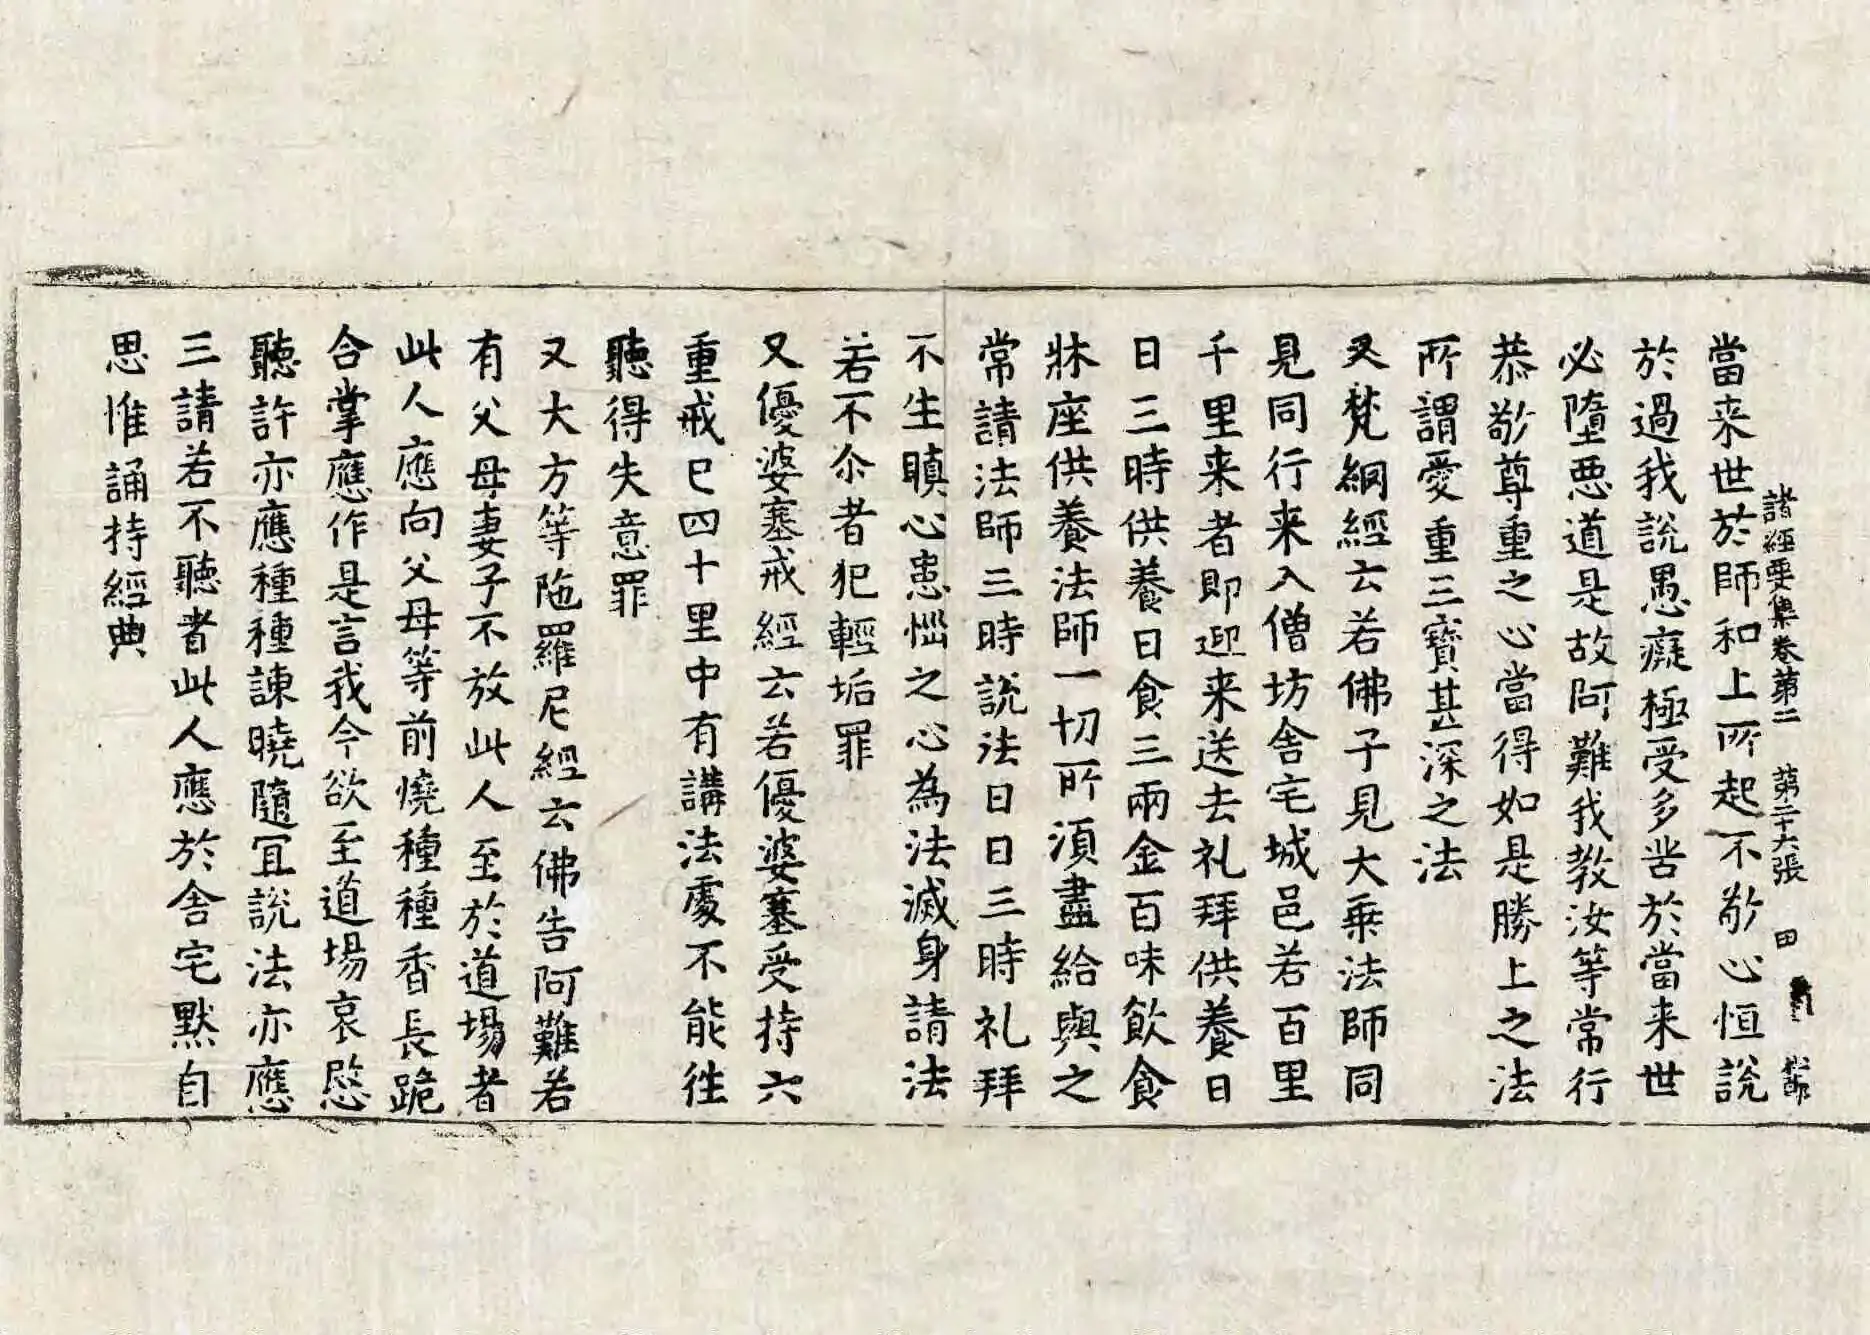 諸經要集卷第二 第二十六張 田
當来世於師和上所起不敬心恒說
於過我說愚癡極受多苦於當来世
必墮惡道是故阿難我教汝等常行
恭敬尊重之心當得如是勝上之法
所謂愛重三寶甚深之法
又梵網經云若佛子見大乗法師同
見同行来入僧坊舍宅城邑若百里
千里来者即迎来送去礼拜供養日
日三時供養日食三兩金百味飲食
牀座供養法師一切所湏盡給與之
常請法師三時說法日日三時礼拜
不生瞋心患惱之心為法滅身請法
若不尒者犯輕垢罪
又優婆塞戒經云若優婆塞受持六
重戒已四十里中有講法處不能往
聽得失意罪
又大方等陁羅尼經云佛告阿難若
有父母妻子不放此人至於道場者
此人應向父母等前燒種種香長跪
合掌應作是言我今欲至道場哀愍
聽許亦應種種諫曉隨冝說法亦應
三請若不聽者此人應於舍宅默自
思惟誦持經典